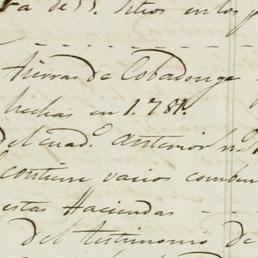 ra de 55. Sitios en los
tierras de Cobadonga
hechas en 1.781.
Del cuad.o anterior n.o
contiene varios comben
estas Haciendas - -
del testimonio de